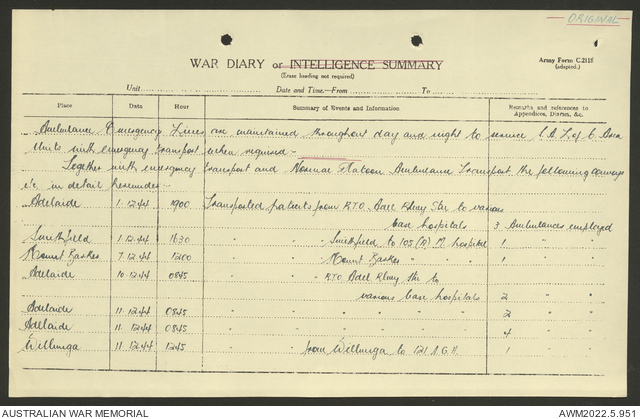 ORIGINAL
WAR DIARY or INTELLIGENCE SUMMARY
(Erase heading not required)
Army Form C.2118
(adapted.)
Unit Date and Time.—From To
Place Date Hour Summary of Events and Information Remarks and references to Appendices, Diaries, &c.
Ambulance Emergency Lines are maintained throughout day and night to service S.A. L of C. Area
Units with emergency transport when required -
Together with emergency transport and Normal Platoon Ambulance Transport, the following convoys
etc. in detail hereunder -
Adelaide 1.12.44 1900 Transported patients from RTO. Adel Rlwy Stn to various
base hospitals 3 Ambulances employed
Smithfield 1.12.44 1630 " " " Smithfield to 105 (A) M. hospital 1 " "
Mount Barker 7.12.44 1200 " " " Mount Barker " " 1 " "
Adelaide 10.12.44 0845 " " " RTO Adel Rlwy Stn to
various base hospitals 2 " "
Adelaide 11.12.44 0845 " " " " " " 2 " "
Adelaide 11.12.44 0845 " " " " " " 4 " "
Willunga 11.12.44 1245 " " from Willunga to 121 A.G.H. 1 " "
AUSTRALIAN WAR MEMORIAL AWM2022.5.951